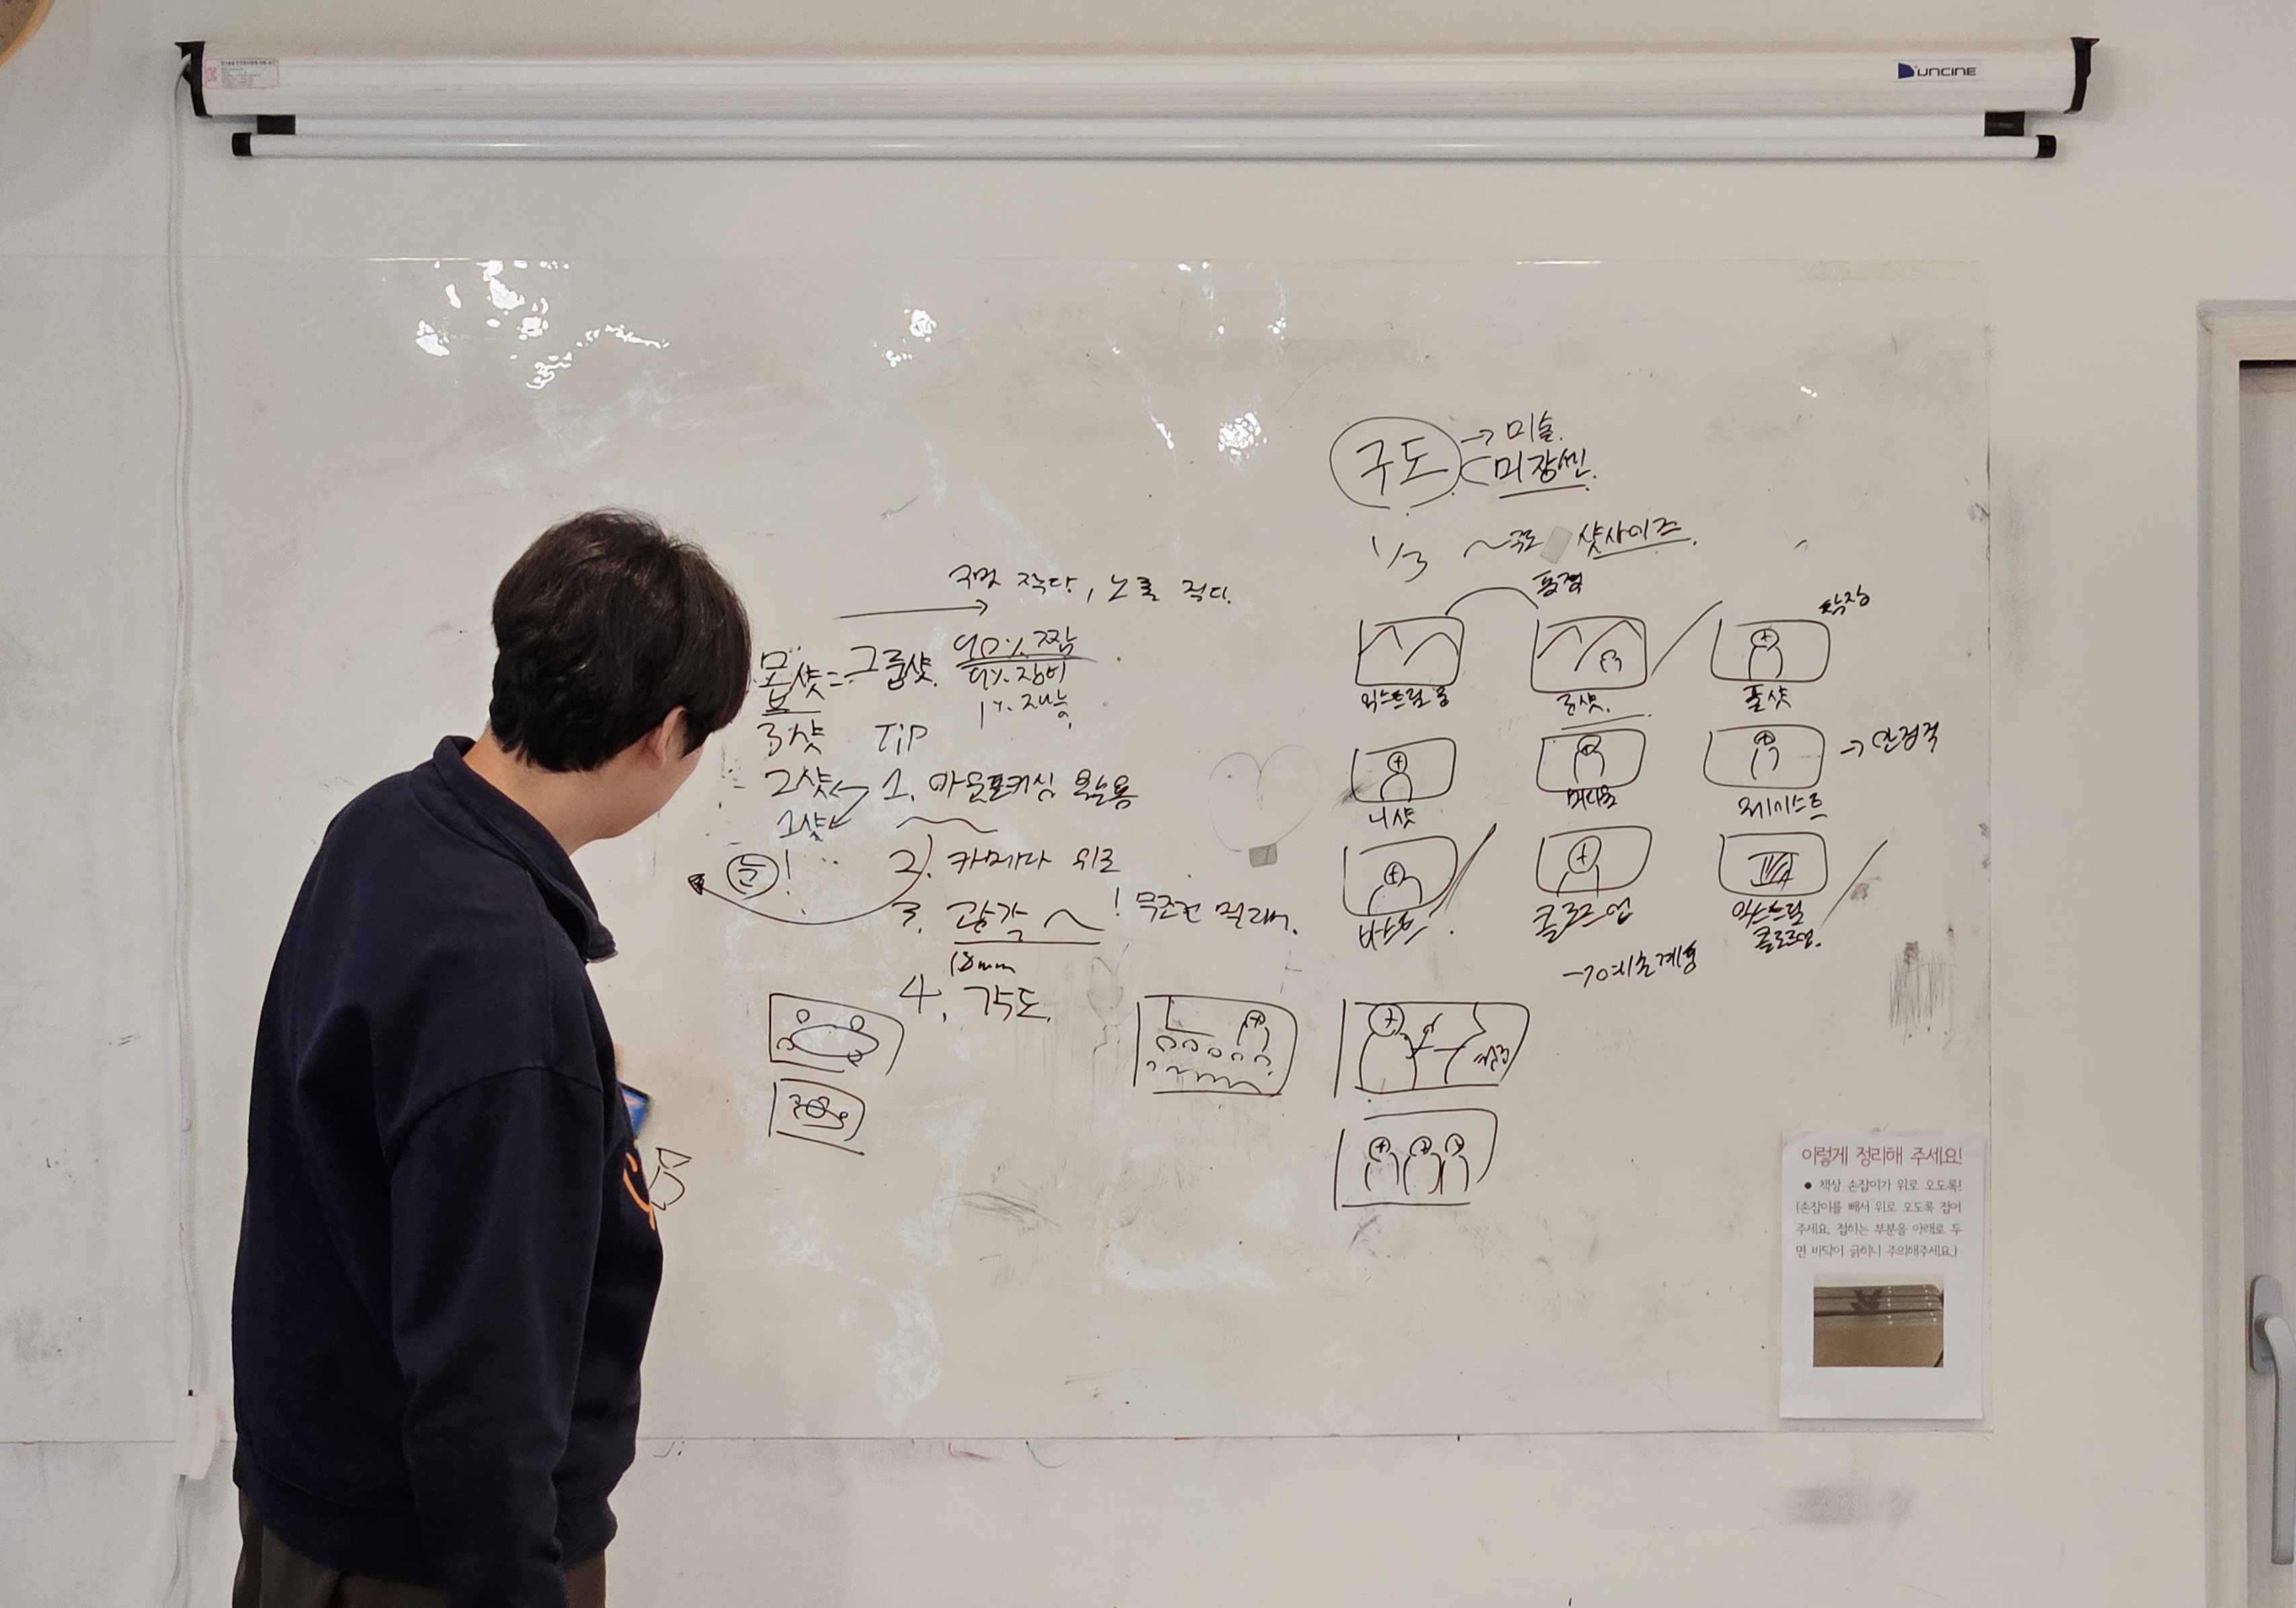 DUNCINE
구도 → 미술.
미장센.
1/3 ~구도 샷사이즈.
풍경
익스트림 롱
롱샷.
풀샷
니샷
미디움
웨이스트
→ 안정적
바스트
클로즈업
익스트림
클로즈업.
몹샷 = 그룹샷.
90% 짬
9% 장비
1% 재능
3샷 TIP
2샷 1. 아웃포커싱
1샷
눈!
2. 카메라 위로
3. 광각 ! 무조건
18mm
4. 각도.
이렇게 정리해 주세요!
● 책상 손잡이가 위로 오도록!
(손잡이를 빼서 위로 오도록 접어
주세요. 접히는 부분을 아래로 두
면 바닥이 긁히니 주의해주세요.)